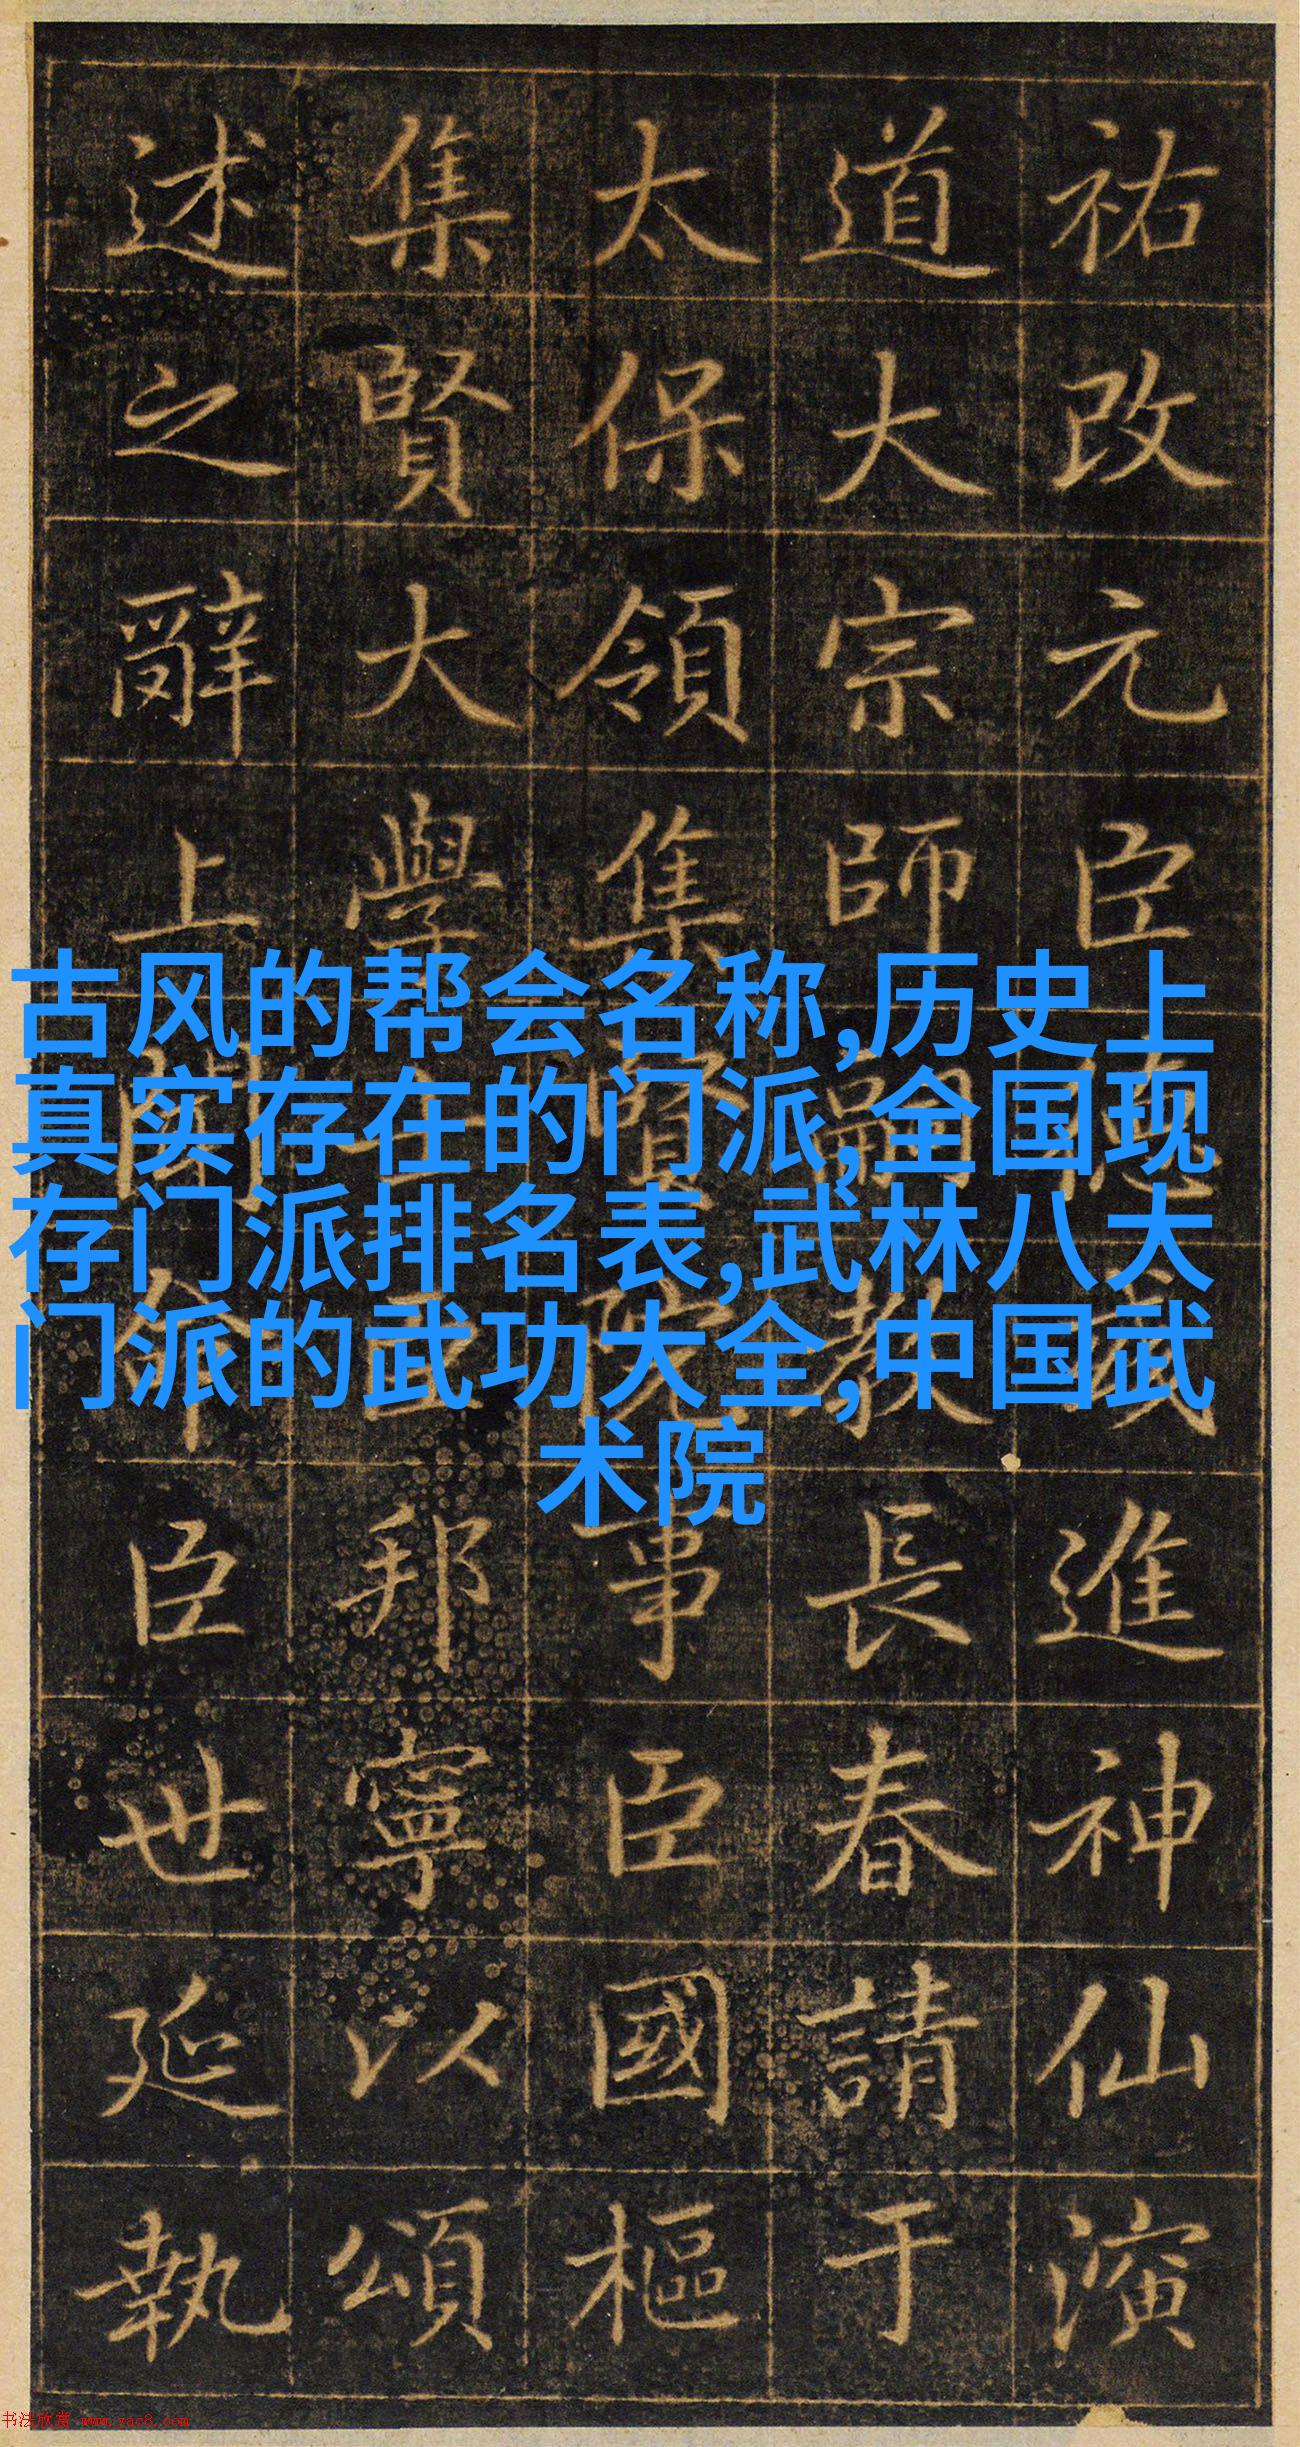 祐改元臣進神仙演
道大宗師嗣教長春請于
太保領集賢院事臣國樞
集賢大學士臣邦寧以頌
述之辭上聞命臣世延執
古风的帮会名称,历史上
真实存在的门派,全国现
存门派排名表,武林八大
门派的武功大全,中国武
术院
书法欣赏 www.yac8.com